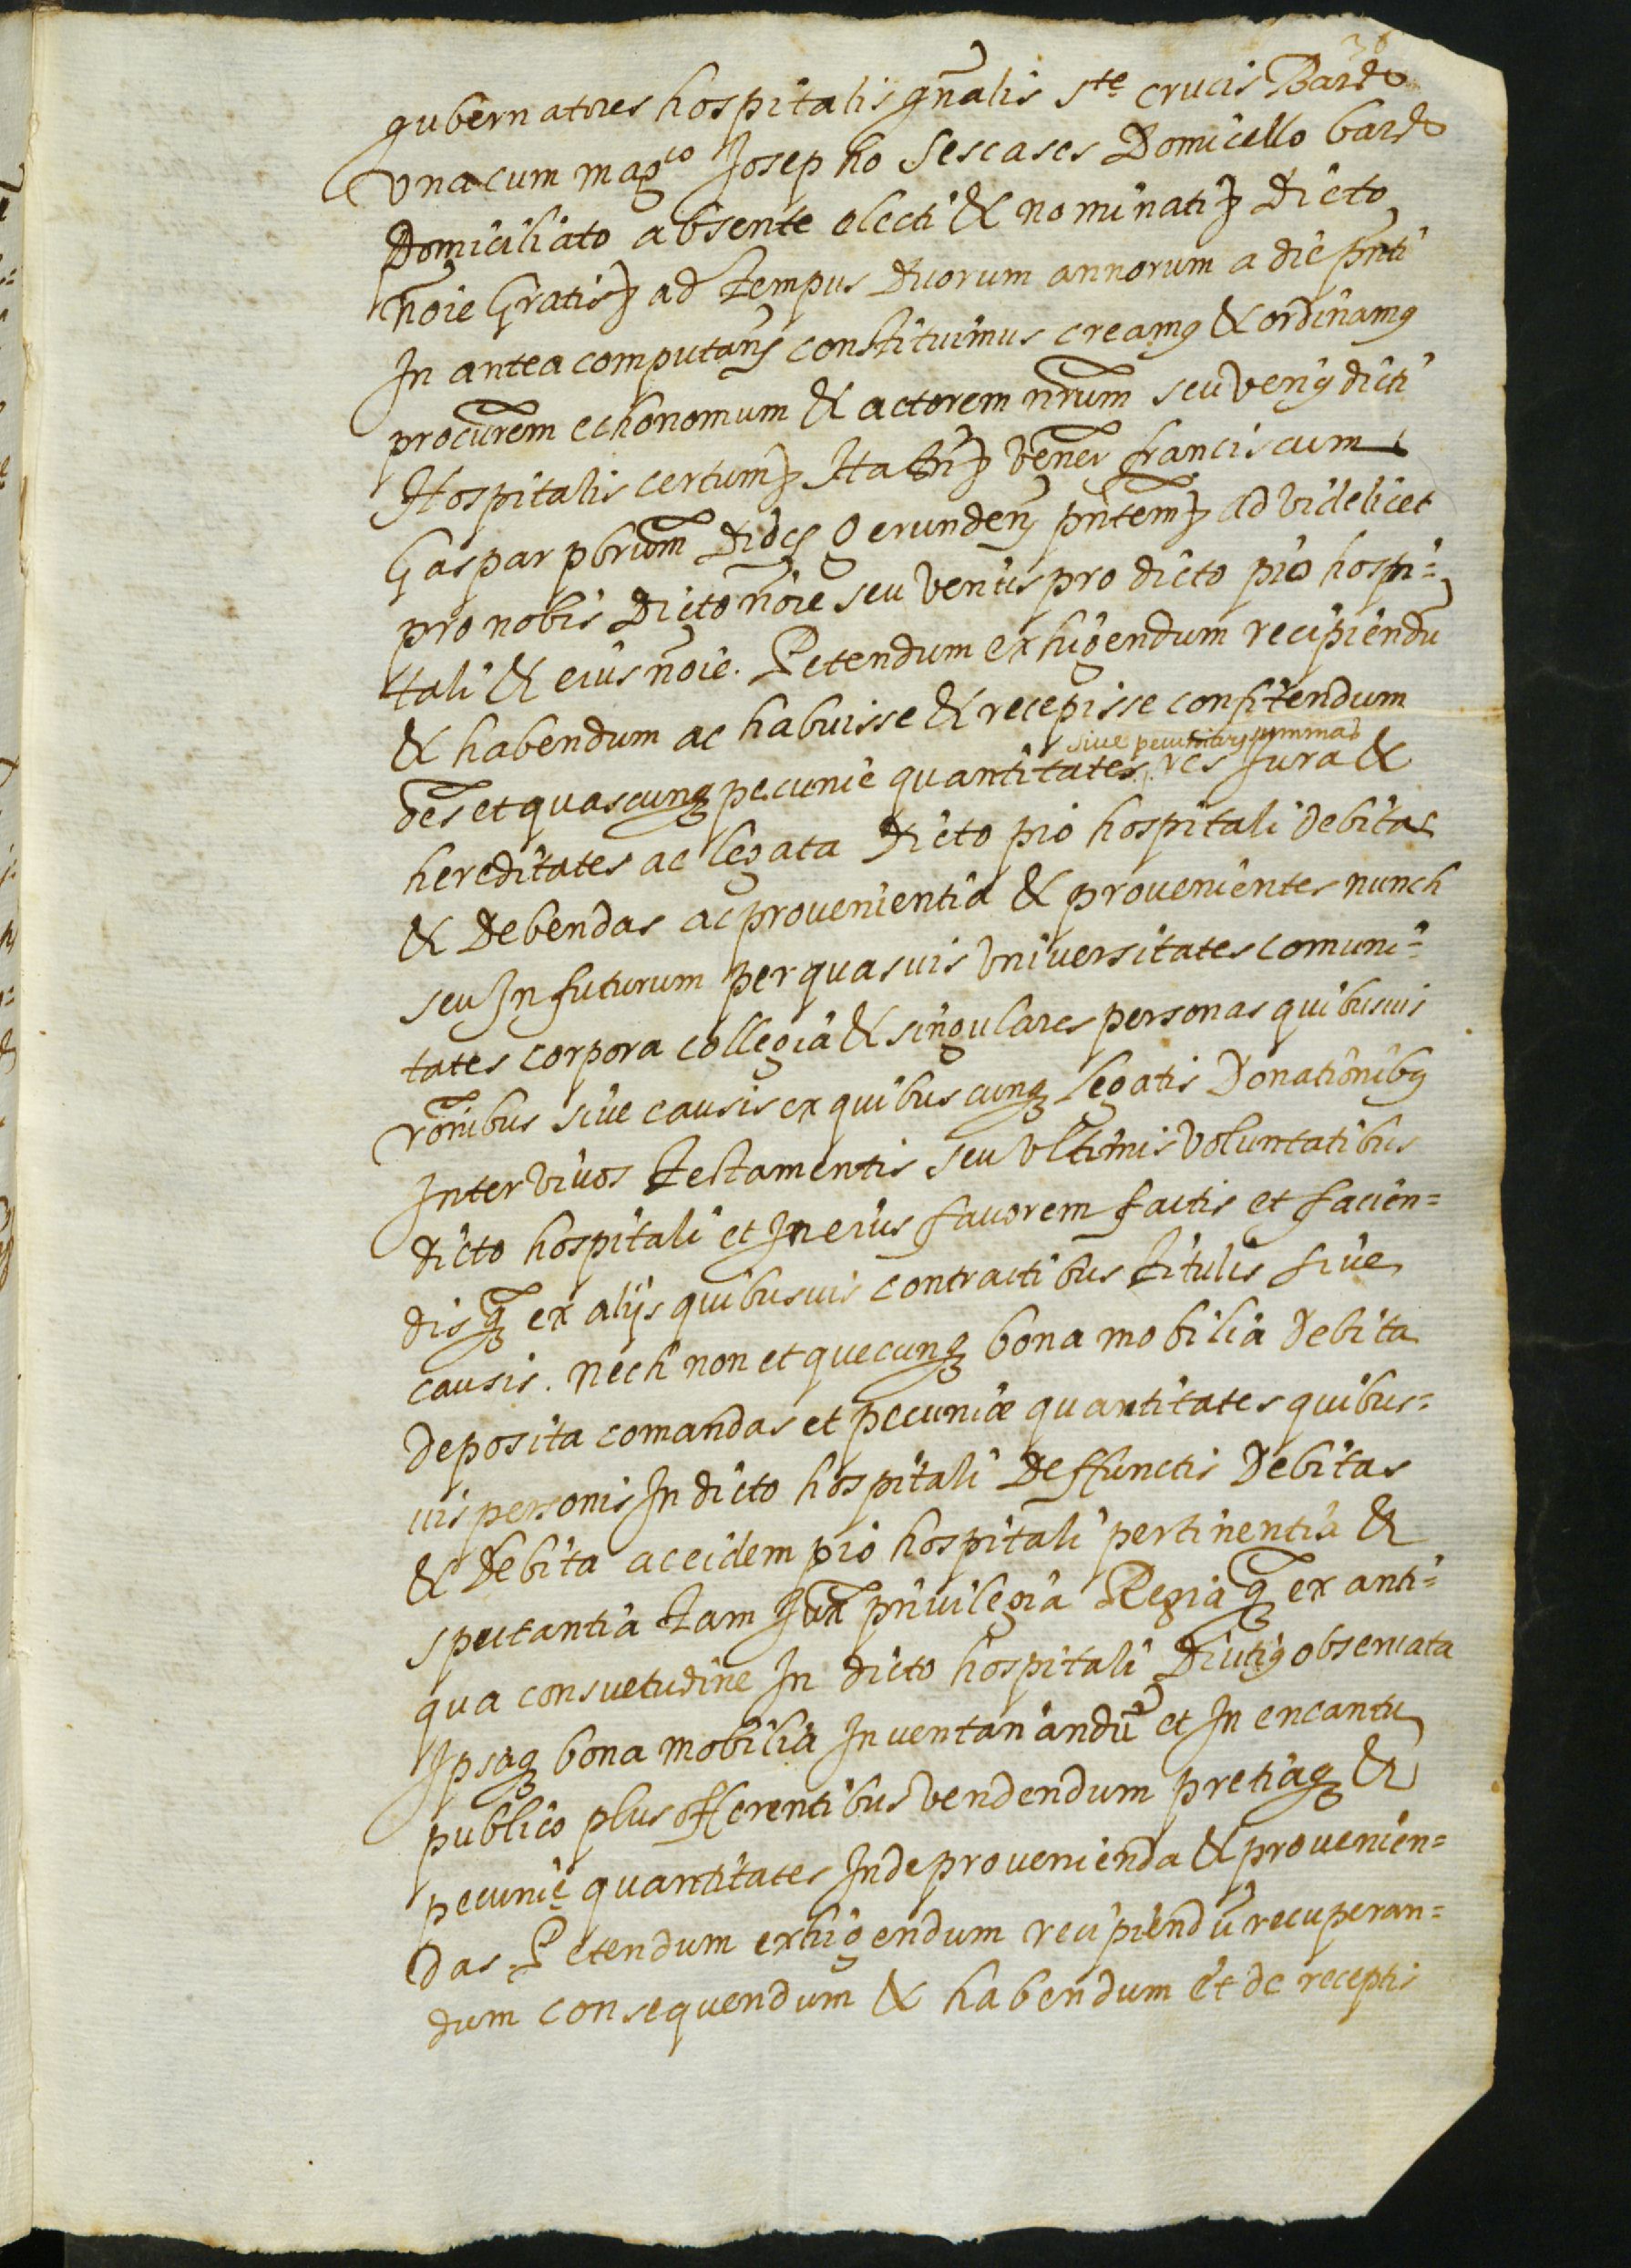 gubernatores hospitalis gñalis Ste crucis Barᵉ
una cum magco Josepho Sescases Domicello barᵉ
Domiciliato absente electi & nominati dicto
noīe Gratis ad tempus Duorum annorum a die pn̄ti
In antea computan̄ constituimus creamꝰ & ordinamꝰ
procurem̄ echonomum & actorem nr̄um seu veriꝰ dicti
Hospitalis certum Ita tn̄ vener̄ franciscum
Gaspar pbrum̄ dioc̄ Gerunden̄ pn̄tem ad videlicet
pro nobis dicto noīe seu verius pro dicto pio hospi=
tali & eius noīe. Petendum exhigendum recipiendū
& habendum ac habuisse & recepisse confitendum
sive pecuniarꝫ summas
oēs et quascunqꝫ pecunie quantitates, res Jura &
hereditates ac legata dicto pio hospitali debitas
& Debendas ac provenientia & provenientes nunch
seu In futurum per quasuis universitates comuni=
tates corpora collegia & singulares personas quibusuis
ron̄ibus sive causis ex quibuscunqꝫ legatis Donationibꝰ
Inter vivos testamentis seu ultimis voluntatibus
dicto hospitali et In eius favorem factis et facien=
dis qꝫ ex alijs quibusuis contractibus titulis sive
causis. nech non et quecunqꝫ bona mobilia debita
Deposita comandas et pecuniæ quantitates quibus=
uis personis In dicto hospitali Deffunctis Debitas
& Debita ac eidem pio hospitali pertinentia &
spectantia tam Juxᵃ privilegia Regia qꝫ ex anti=
qua consuetudine In dicto hospitali Diutiꝰ observata
Ipsaqꝫ bona mobilia Inventariandū et In encantu
publico plus offerentibus vendendum pretiaqꝫ &
pecunię quantitates Inde provenienda & provenien=
das. Petendum exhigendum recipiendū recuperan=
dum consequendum & habendum et de receptis